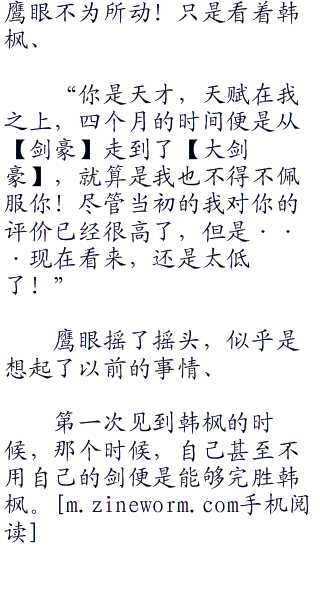 鹰眼不为所动！只是看着韩
枫、
“你是天才，天赋在我
之上，四个月的时间便是从
【剑豪】走到了【大剑
豪】，就算是我也不得不佩
服你！尽管当初的我对你的
评价已经很高了，但是··
·现在看来，还是太低
了！”
鹰眼摇了摇头，似乎是
想起了以前的事情、
第一次见到韩枫的时
候，那个时候，自己甚至不
用自己的剑便是能够完胜韩
枫。[m.zineworm.com手机阅
读]